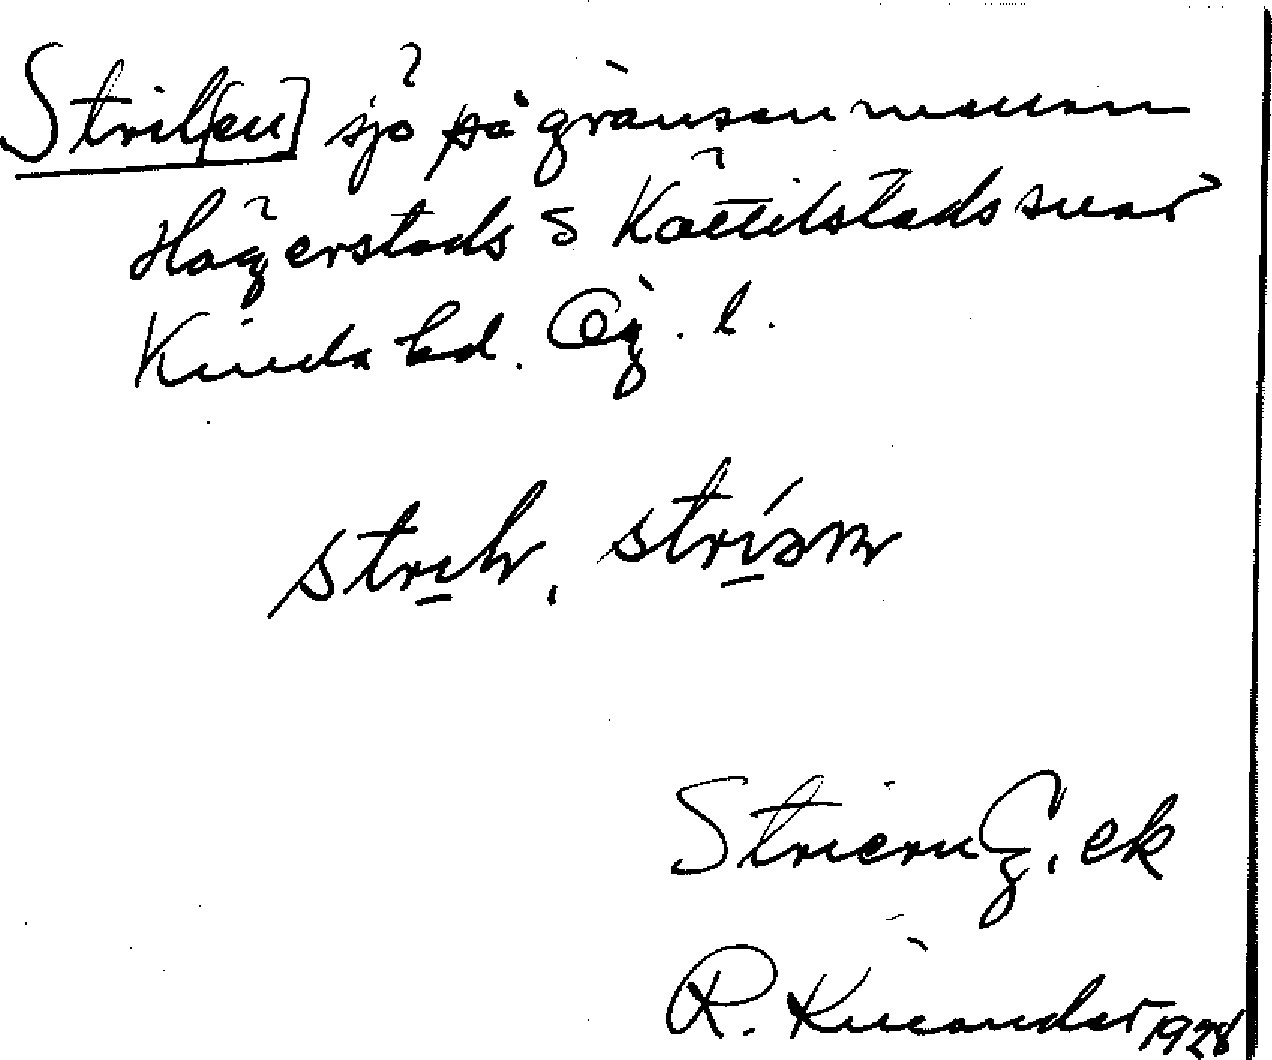 Stril[en] sjö på gränsen mellan
Hägerstads o Kättilstads snar
Kinda hd. Ög. l.
Striern G. ek
R. Kinander 1928